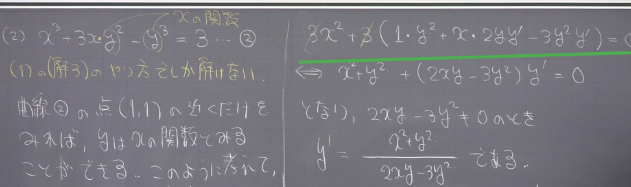 xの関数
(2) x³+3x・y²-(y)³=3 … ②
(1)の(解3)のやり方でしか解けない.
曲線②の点(1,1)の近くだけを
みれば, yはxの関数とみる
ことができる. このように考えて,
3x²+3(1・y²+x・2yy'-3y²y')=0
⇔ x²+y²+(2xy-3y²)y'=0
となり, 2xy-3y²≠0のとき
y'= x²+y² / 2xy-3y² である.